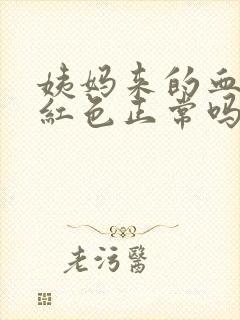 姨妈来的血
紅色正常吗
老污醫